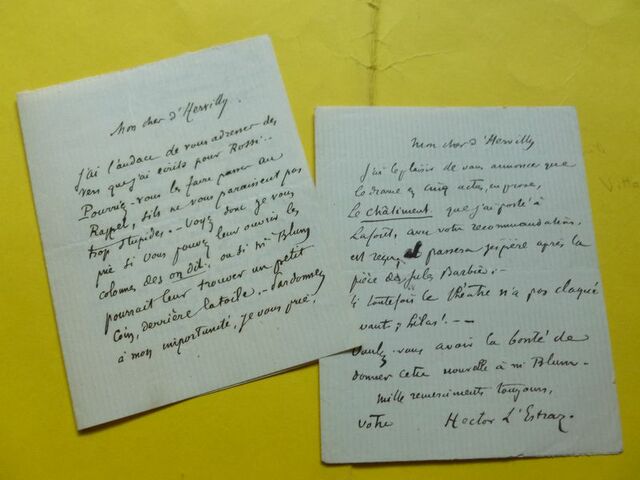 Mon cher d'Hervilly.
J'ai l'audace de vous adresser des
vers que j'ai écrits pour Rossi..
Pourriez-vous les faire passer au
Rappel, s'ils ne vous paraissent pas
trop stupides. - Voyez donc je vous
prie si vous pouvez leur ouvrir les
colonnes des on dit, ou si mr Blum
pourrait leur trouver un petit
coin, derrière la toile. - Pardonnez
à mon importunité, je vous prie,
Mon cher d'Hervilly
J'ai le plaisir de vous annoncer que
le drame en cinq actes, en prose,
Le châtiment que j'ai porté à
Laforêt, avec votre recommandation,
est reçu, et passera j'espère après la
pièce de Jules Barbier. -
si toutefois le théâtre n'a pas claqué
avant, hélas! - -
Voulez-vous avoir la bonté de
donner cette nouvelle à mr Blum -
mille remerciments toujours,
votre Hector L'Estraz.